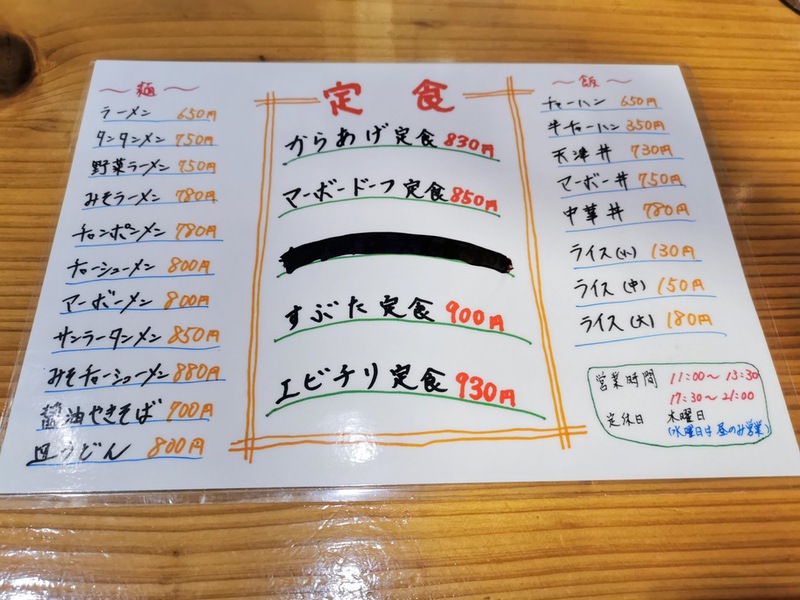 ～麺～
ラーメン 650円
タンタンメン 750円
野菜ラーメン 750円
みそラーメン 780円
チャンポンメン 780円
チャーシューメン 800円
マーボーメン 800円
サンラータンメン 850円
みそチャーシューメン 880円
醤油やきそば 700円
皿うどん 800円
定食
からあげ定食 830円
マーボードーフ定食 850円
すぶた定食 900円
エビチリ定食 930円
～飯～
チャーハン 650円
半チャーハン 350円
天津丼 730円
マーボー丼 750円
中華丼 780円
ライス(小) 130円
ライス(中) 150円
ライス(大) 180円
営業時間 11:00～13:30
17:30～21:00
定休日 木曜日
(水曜日は昼のみ営業)